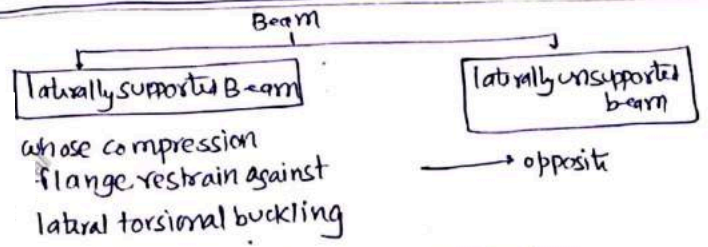 Beam
laterally supported Beam
laterally unsupported
beam
whose compression
flange restrain against
lateral torsional buckling
→ opposite